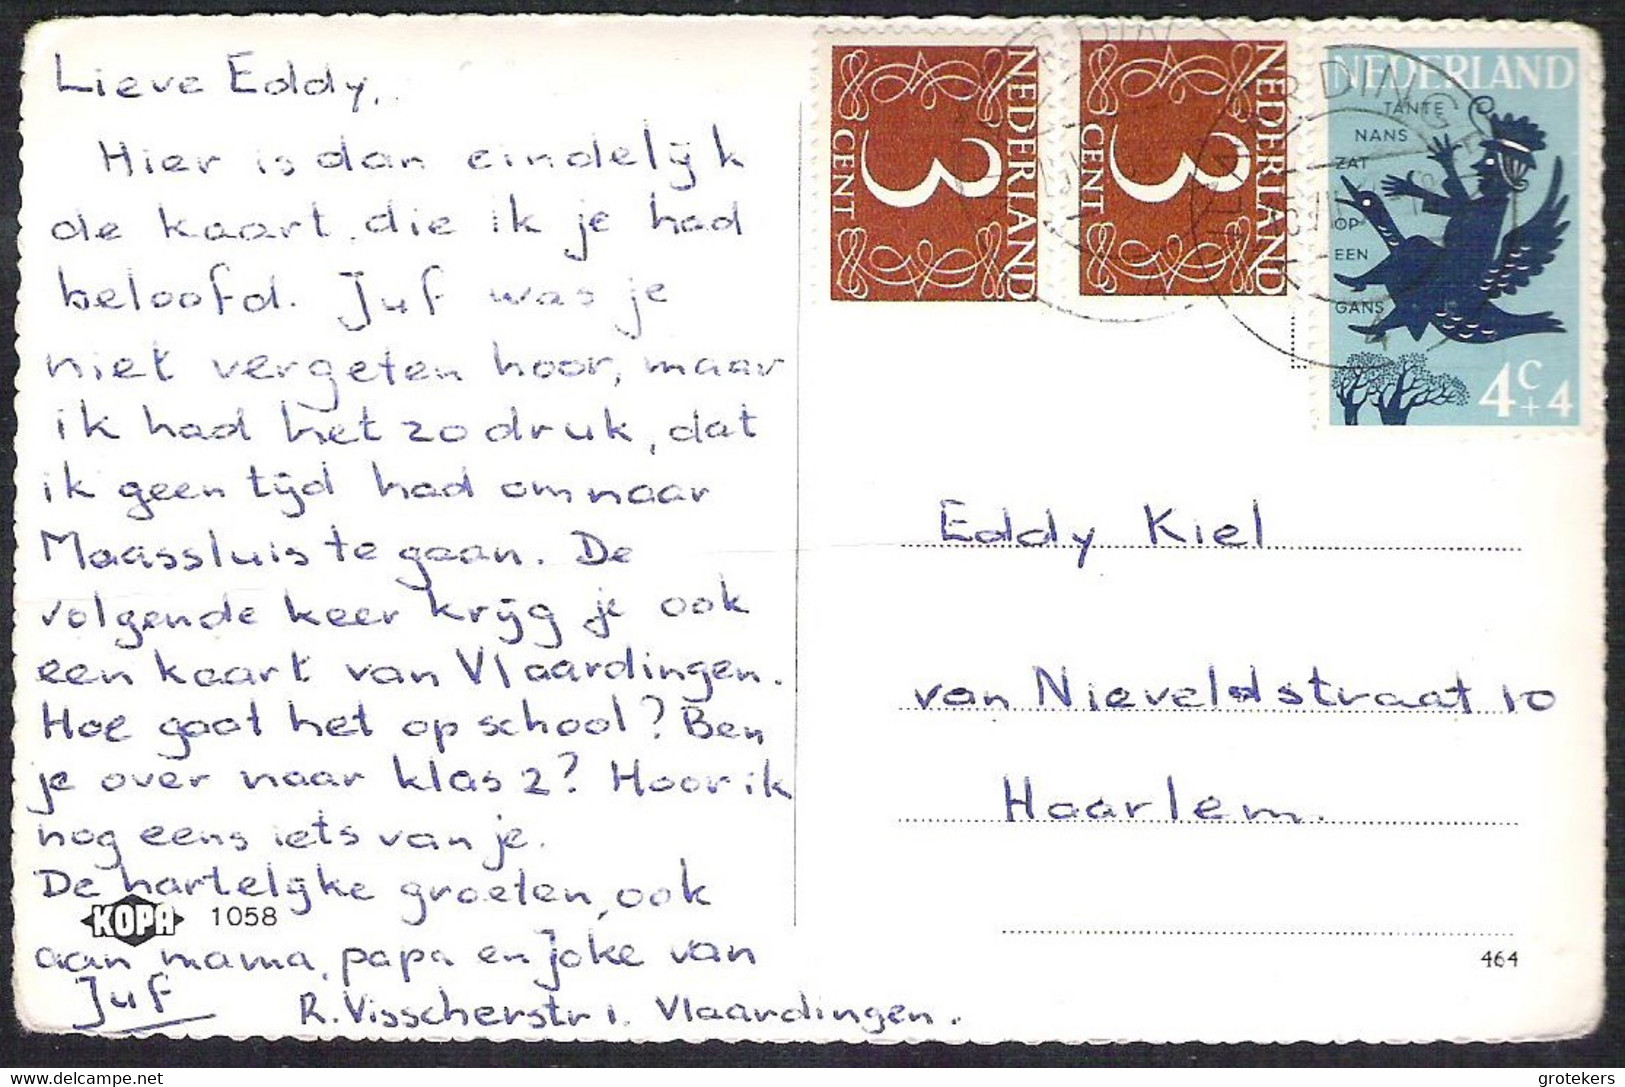 Lieve Eddy,
Hier is dan eindelijk
de kaart, die ik je had
beloofd. Juf was je
niet vergeten hoor, maar
ik had het zo druk, dat
ik geen tijd had om naar
Maassluis te gaan. De
volgende keer krijg je ook
een kaart van Vlaardingen.
Hoe gaat het op school? Ben
je over naar klas 2? Hoor ik
nog eens iets van je.
De hartelijke groeten, ook
KOPA 1058
aan mama, papa en Joke van
Juf
R. Visscherstr 1. Vlaardingen.
NEDERLAND
3
CENT
NEDERLAND
3
CENT
NEDERLAND
TANTE
NANS
ZAT
OP
EEN
GANS
4c+4
Eddy Kiel
van Nieveldstraat 10
Haarlem.
464
grotekers